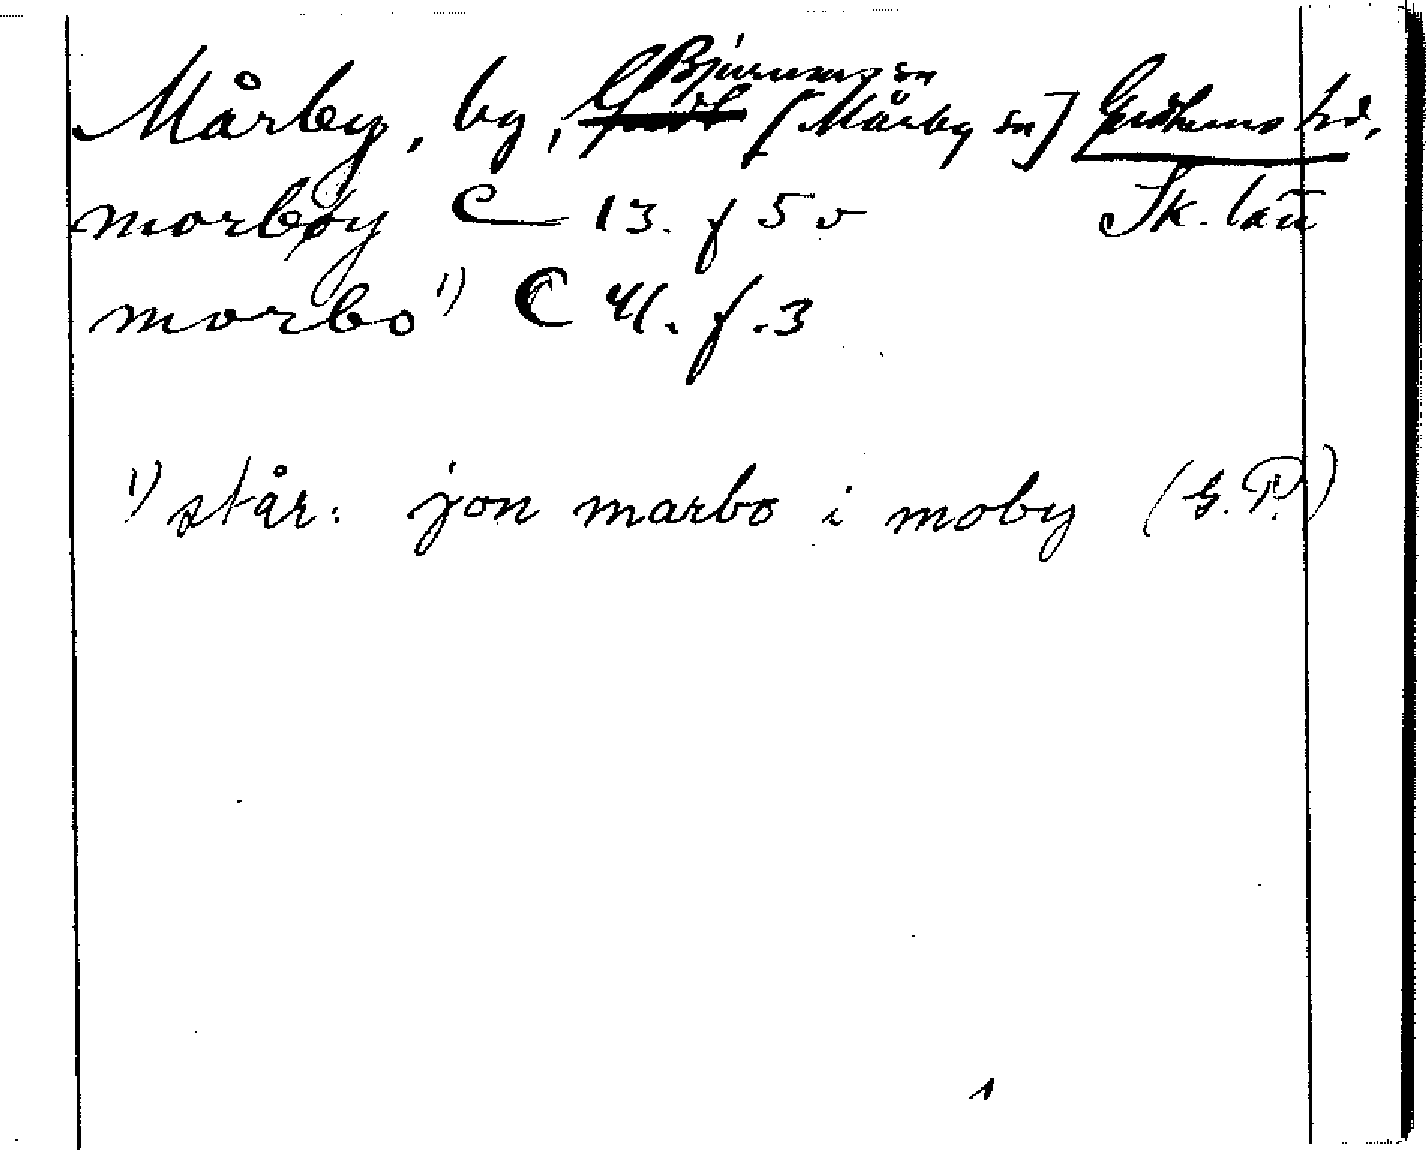 Mårby, by, Bjurums sn [Mårby sn] Gudhems hd,
morbøy C 13. f 5 v Sk. län
morbo 1) C 41. f. 3
1) står: jon marbo i moby (G. P.)
1